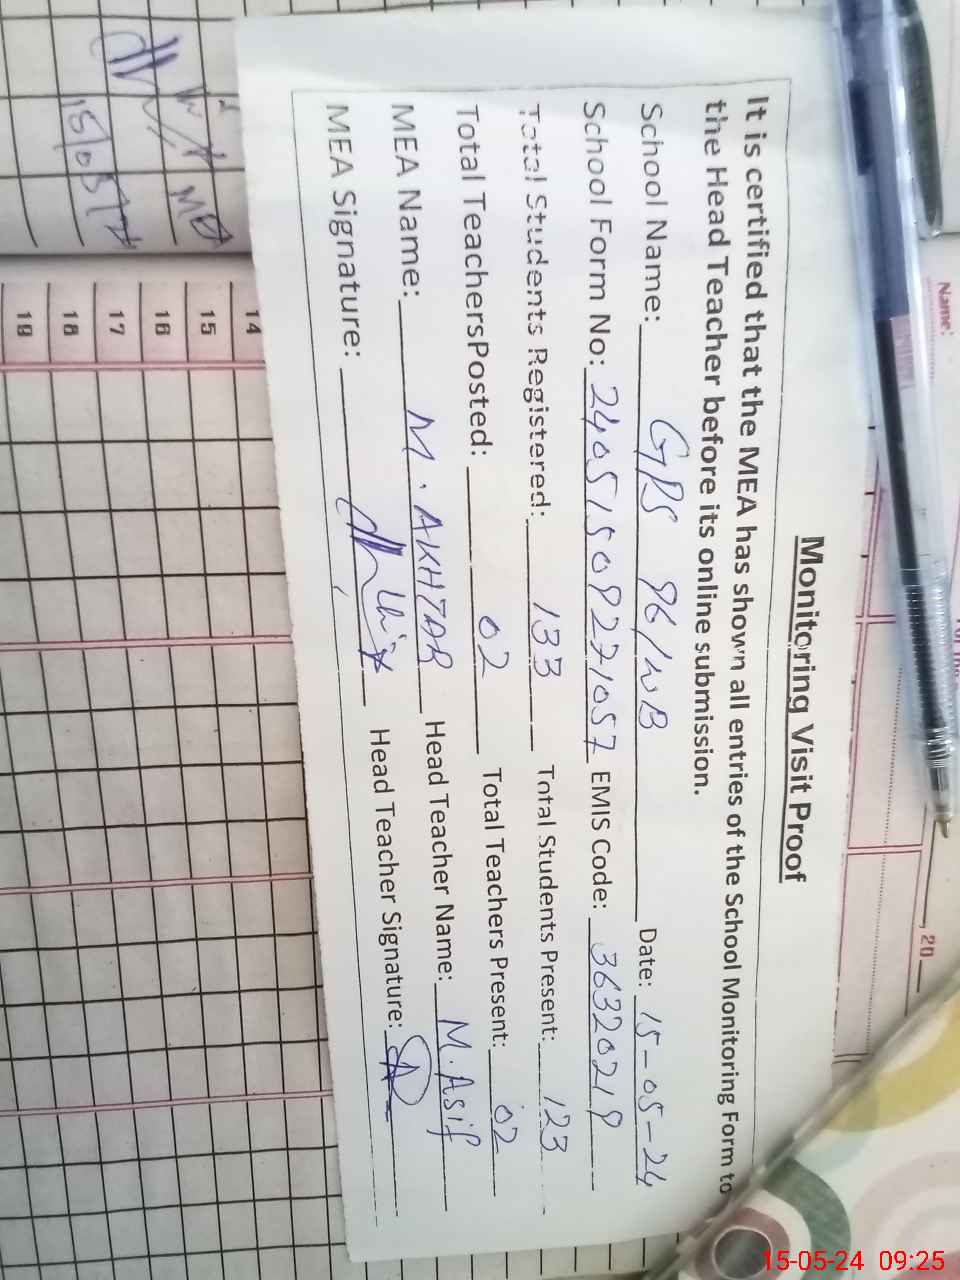 Monitoring Visit Proof
It is certified that the MEA has shown all entries of the School Monitoring Form to
the Head Teacher before its online submission.
School Name: GPS 96/WB Date: 15-05-24
School Form No: 24051509271057 EMIS Code: 36320219
Total Students Registered: 133 Total Students Present: 123
Total TeachersPosted: 02 Total Teachers Present: 02
MEA Name: M. AKHTAR Head Teacher Name: M. Asif
MEA Signature: Head Teacher Signature:
14
15
16
17
18
19
Name:
, 20
15-05-24 09:25